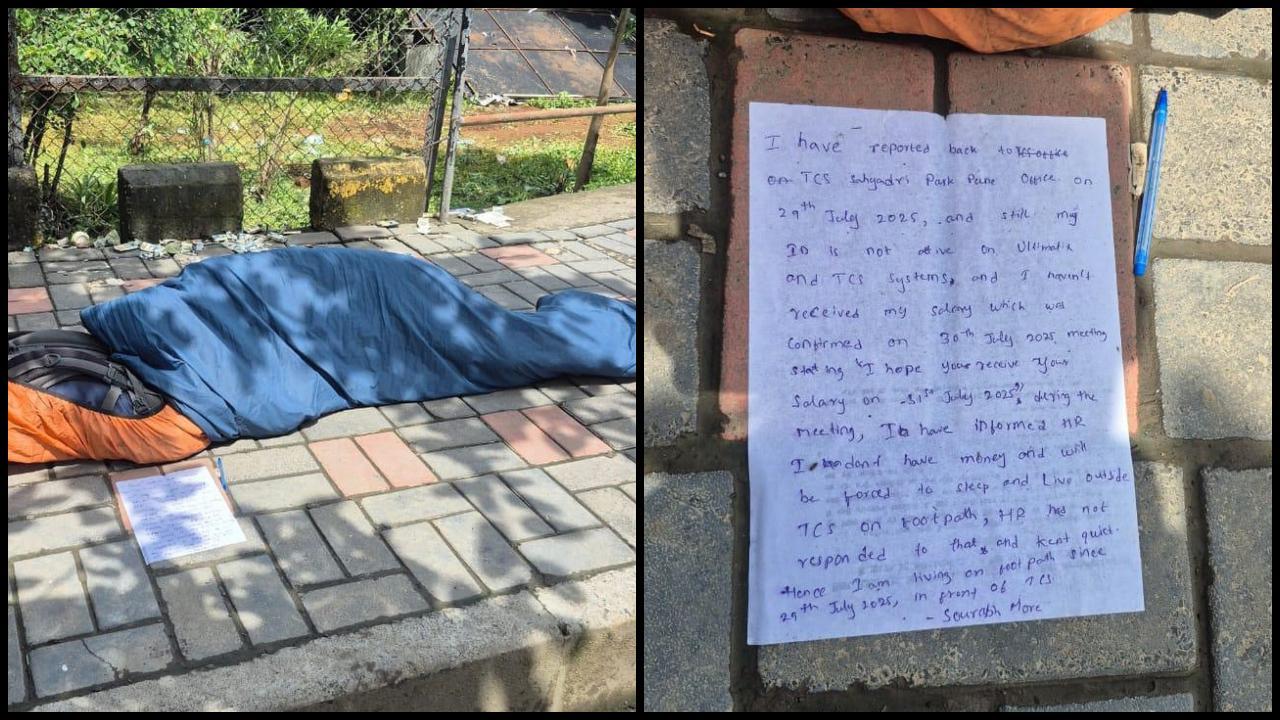 I have reported back to TCS office
on TCS Sahyadri Park Pune Office on
29th July 2025, and still my
ID is not ative on Ultimatix
and TCS systems, and I haven't
received my salary which was
confirmed on 30th July 2025 meeting
stating "I hope your receive your
salary on 31st July 2025", during the
meeting, I have informed HR
I don't have money and will
be forced to sleep and live outside
TCS on footpath, HR has not
responded to that, and kept quiet.
Hence I am living on footpath since
29th July 2025, in front of TCS
- Sourabh More